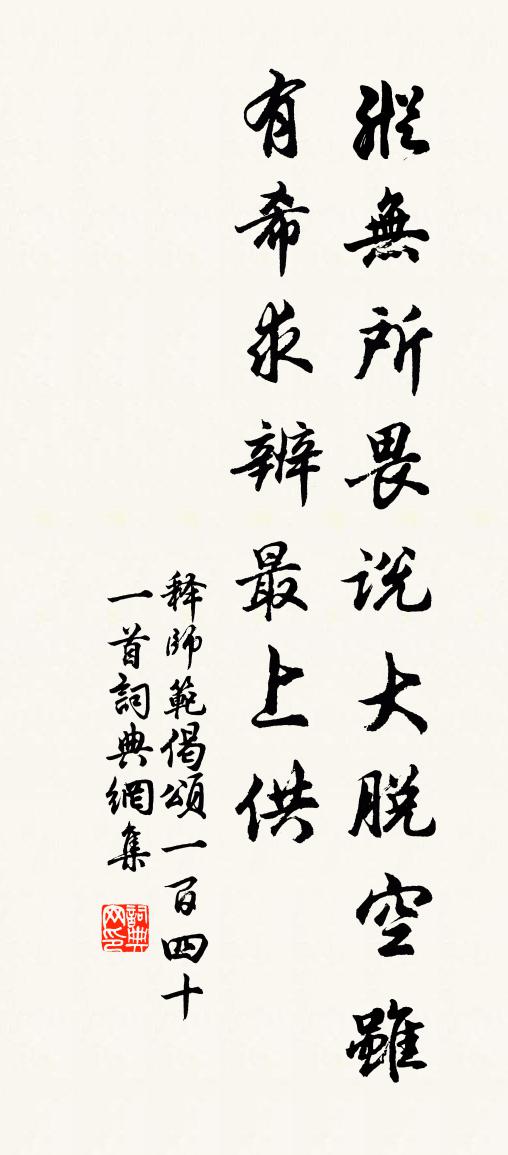 縱無所畏説大脱空雖
有希求辨最上供
释師範偈頌一百四十
一首詞典網集
詞典
网印